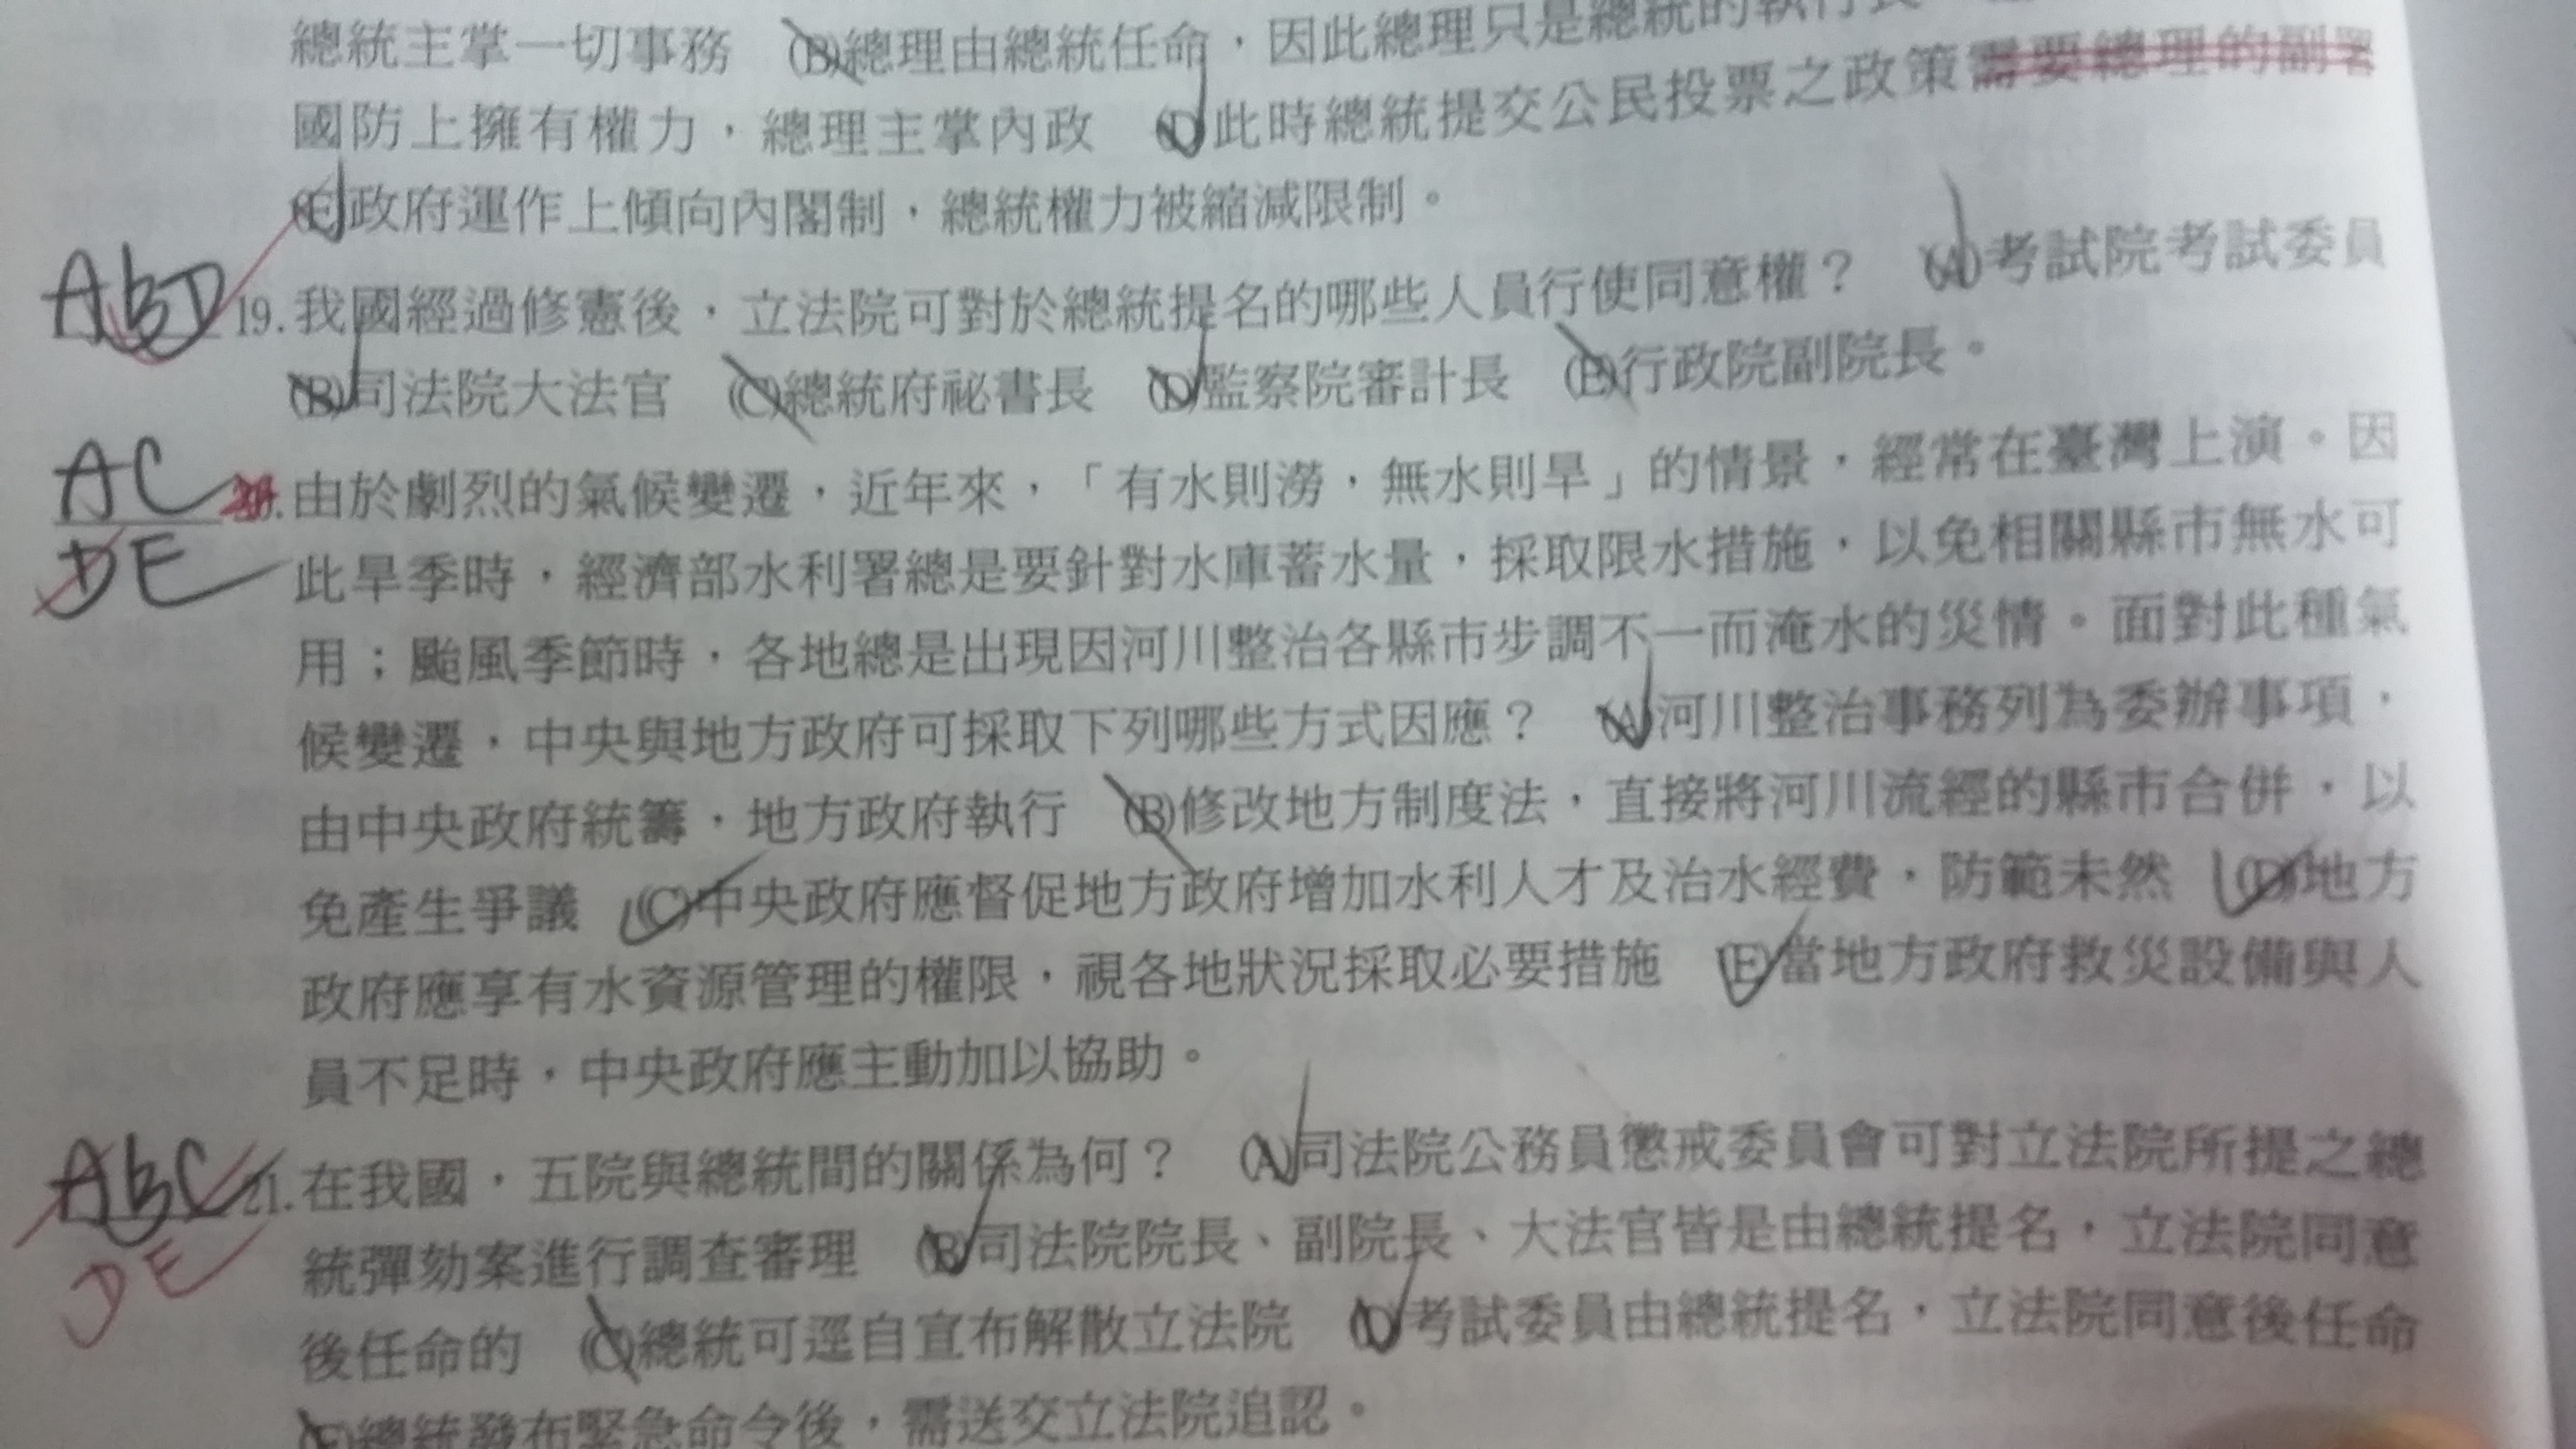 總統主掌一切事務 (B)總理由總統任命，因此總理只是總統的執行長
國防上擁有權力，總理主掌內政 (D)此時總統提交公民投票之政策需要總理的副署
(E)政府運作上傾向內閣制，總統權力被縮減限制。
ABD 19.我國經過修憲後，立法院可對於總統提名的哪些人員行使同意權？ (A)考試院考試委員
(B)司法院大法官 (C)總統府祕書長 (D)監察院審計長 (E)行政院副院長。
AC 由於劇烈的氣候變遷，近年來，「有水則澇，無水則旱」的情景，經常在臺灣上演。因
DE 此旱季時，經濟部水利署總是要針對水庫蓄水量，採取限水措施，以免相關縣市無水可
用；颱風季節時，各地總是出現因河川整治各縣市步調不一而淹水的災情。面對此種氣
候變遷，中央與地方政府可採取下列哪些方式因應？ (A)河川整治事務列為委辦事項，
由中央政府統籌，地方政府執行 (B)修改地方制度法，直接將河川流經的縣市合併，以
免產生爭議 (C)中央政府應督促地方政府增加水利人才及治水經費，防範未然 (D)地方
政府應享有水資源管理的權限，視各地狀況採取必要措施 (E)當地方政府救災設備與人
員不足時，中央政府應主動加以協助。
ABC 21.在我國，五院與總統間的關係為何？ (A)司法院公務員懲戒委員會可對立法院所提之總
DE 統彈劾案進行調查審理 (B)司法院院長、副院長、大法官皆是由總統提名，立法院同意
後任命的 (C)總統可逕自宣布解散立法院 (D)考試委員由總統提名，立法院同意後任命
(E)總統發布緊急命令後，需送交立法院追認。